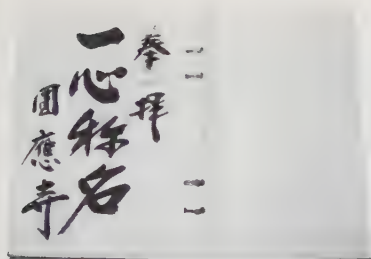 奉拝
一心称名
圓應寺